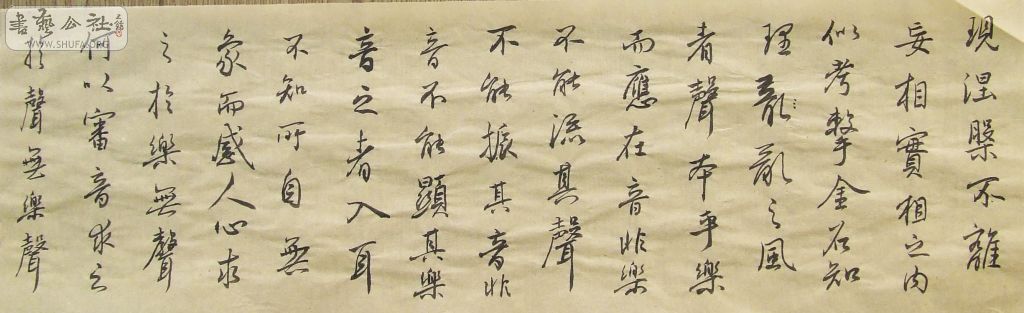 現涅槃不離
妄相實相之內
似考擊金石知
理亂亂之風
者聲本乎樂
而應在音非樂
不能流其聲
不能振其音非
音不能顯其樂
音之者入耳
不知所自無
象而感人心求
之於樂無聲
何以審音求之
於聲無樂聲
書藝公社
WWW.SHUFA.ORG